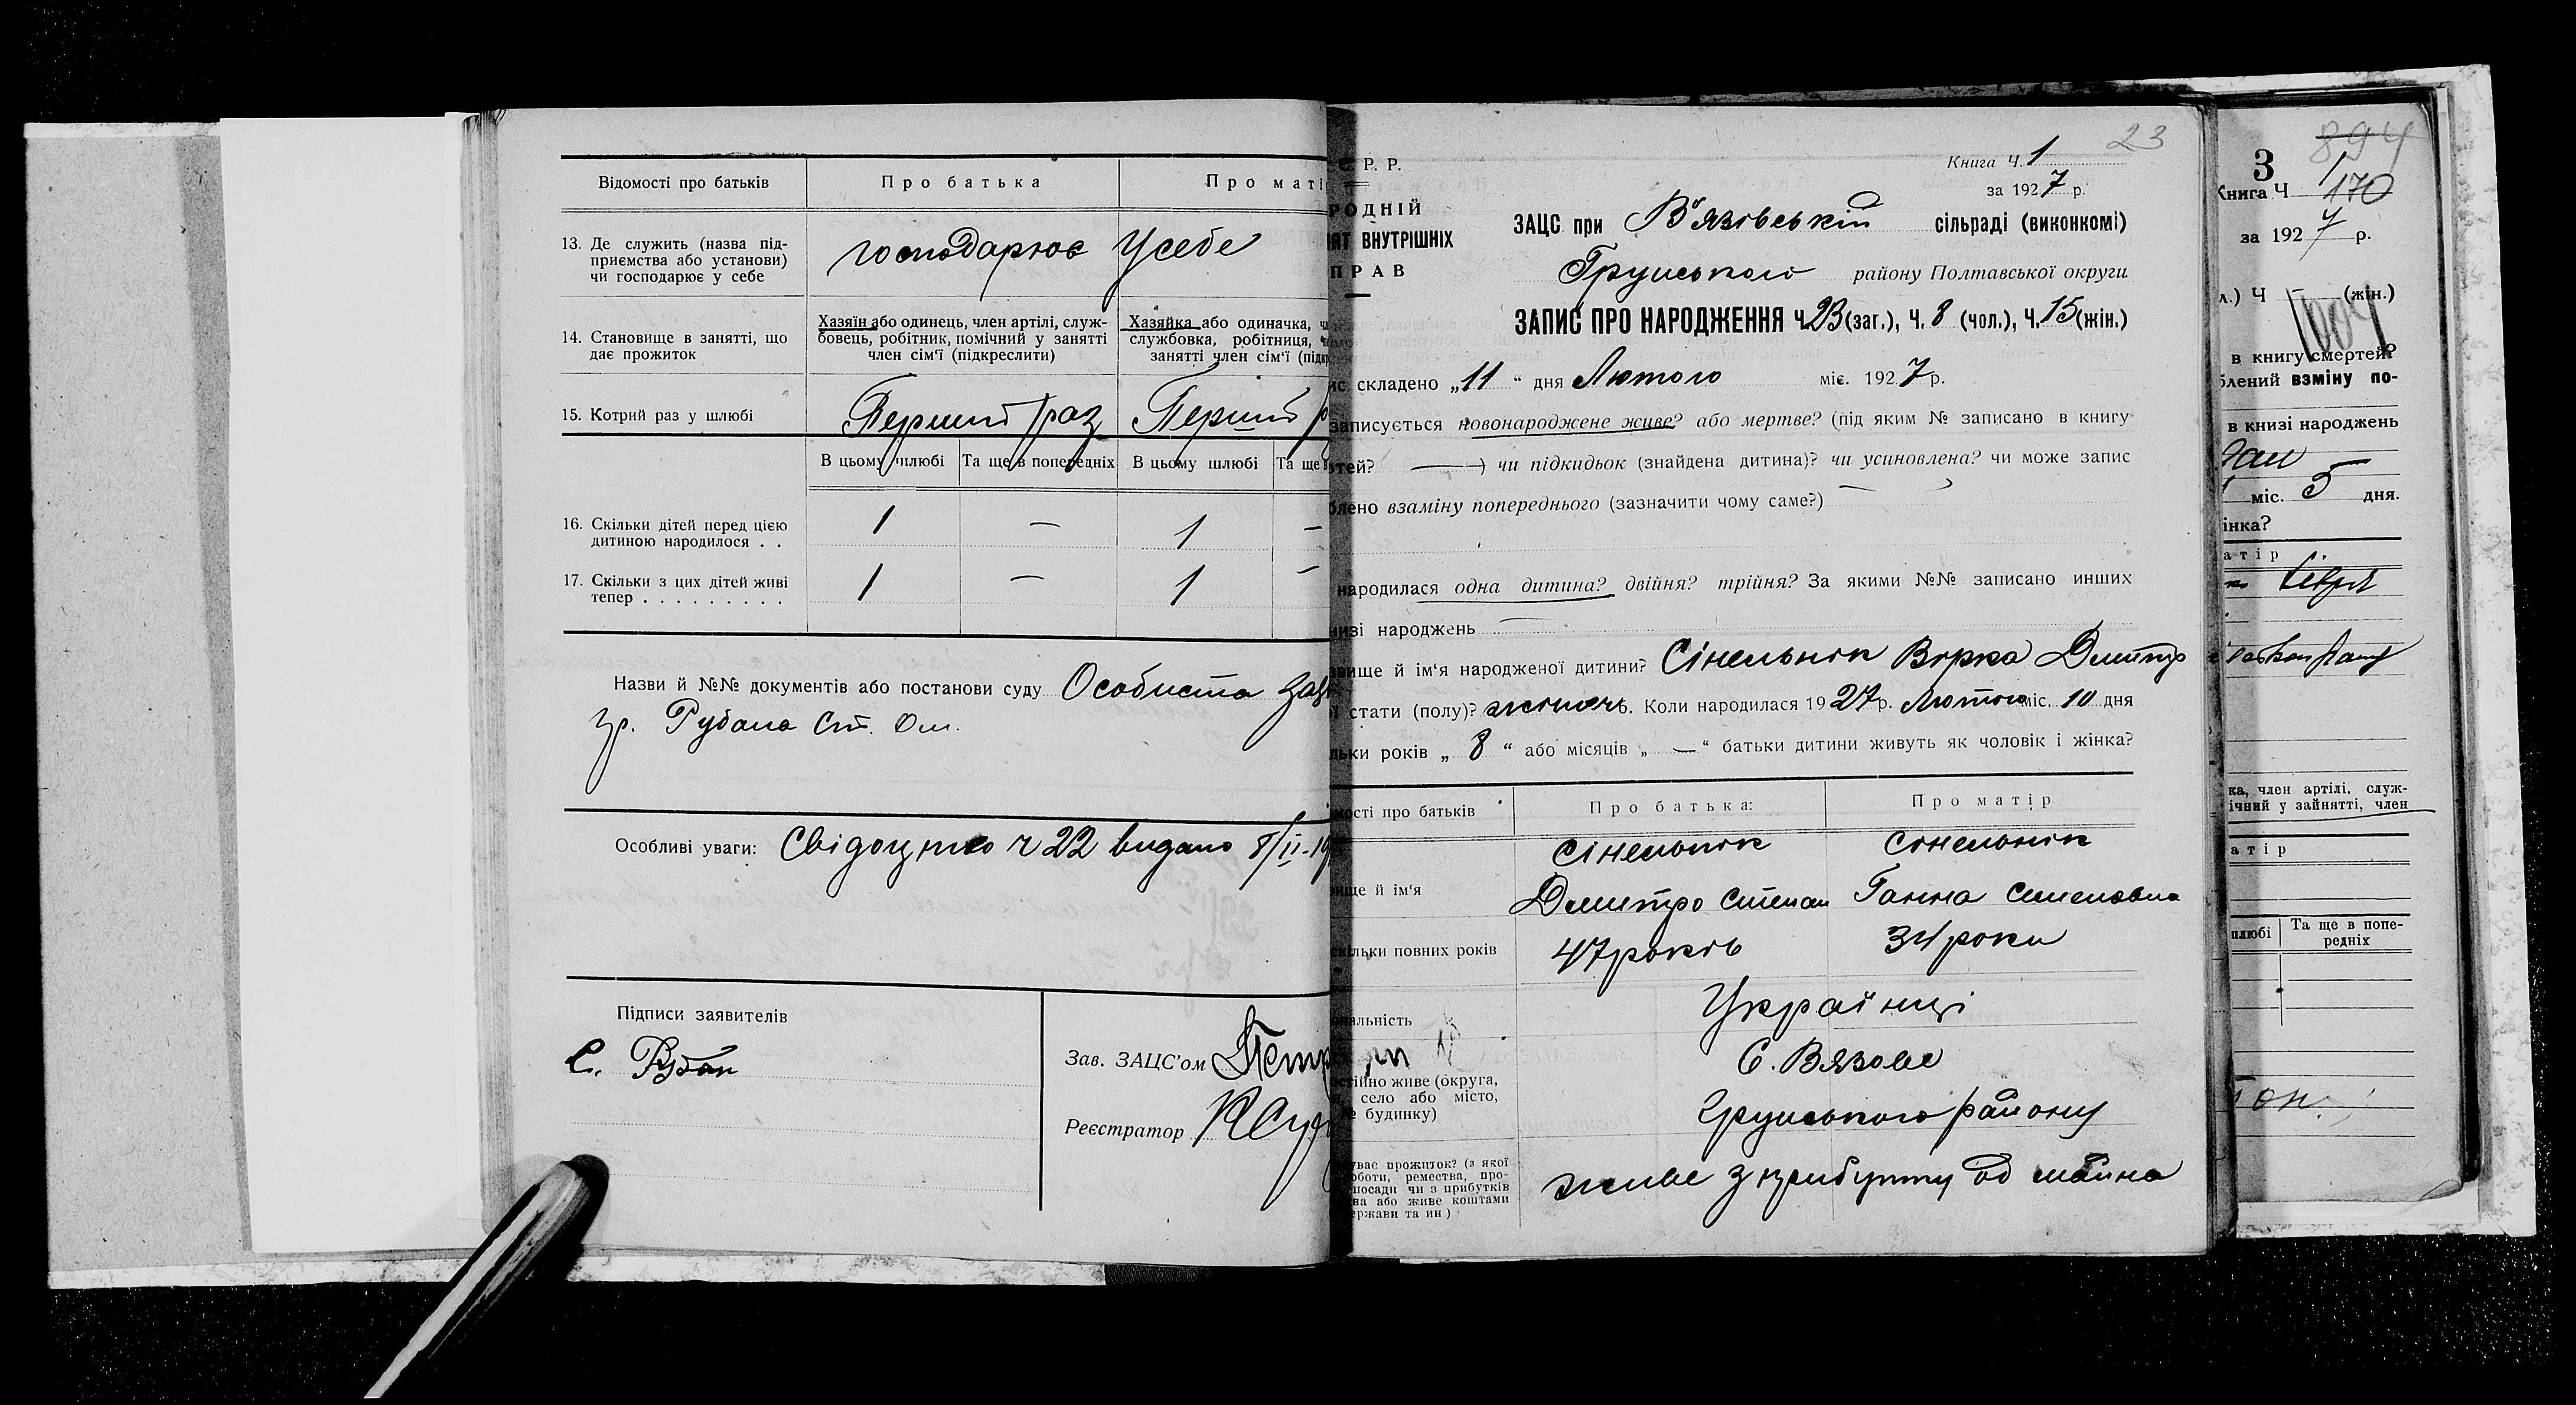 Відомості про батьків
Про батька
Про маті
13. Де служить (назва під-
приємства або установи)
чи господарює у себе
господарює Усебе
14. Становище в занятті, що
дає прожиток
Хазяїн або одинець, член артілі, служ-
бовець, робітник, помічний у занятті
член сім'ї (підкреслити)
Хазяйка або одиначка, ч
службовка, робітниця,
занятті член сім'ї (підк
15. Котрий раз у шлюбі
Перший раз
Перший р
В цьому шлюбі
Та ще в попередніх
В цьому шлюбі
Та ще
16. Скільки дітей перед цією
дитиною народилося . .
1 — 1 —
17. Скільки з цих дітей живі
тепер . . . . . . . . .
1 — 1 —
Назви й №№ документів або постанови суду Особиста зая
гр. Рубана Ст. Ом.
Особливі уваги: Свідоцтво ч 22 видано 8/II-19
Підписи заявителів
С. Рубан
Зав. ЗАЦС'ом
Реєстратор
23
С. Р. Р.
Книга Ч. 1
за 1927 р.
РОДНІЙ
ЯТ ВНУТРІШНІХ
ПРАВ
ЗАЦС при В'язівській сільраді (виконкомі)
Грунського району Полтавської округи
ЗАПИС ПРО НАРОДЖЕННЯ Ч. 23 (заг.), Ч. 8 (чол.), Ч. 15 (жін.)
ис складено „11“ дня Лютого міс. 1927 р.
записується новонароджене живе? або мертве? (під яким № записано в книгу
тей? —) чи підкидьок (знайдена дитина)? чи усиновлена? чи може запис
блено взаміну попереднього (зазначити чому саме?) —
народилася одна дитина? двійня? трійня? За якими №№ записано инших
низі народжень —
вище й ім'я народженої дитини? Сінельнік Вірка Дмитр
ї стати (полу)? жіноч. Коли народилася 1927 р. Лютого міс. 10 дня
льки років „8“ або місяців „—“ батьки дитини живуть як чоловік і жінка?
мості про батьків
Про батька:
Про матір
вище й ім'я
Сінельнік
Дмитро Степан
Сінельнік
Ганна Семеновна
скільки повних років
47 років
34 роки
ональність
Українці
остійно живе (округа,
н, село або місто,
№ будинку)
С. Вязове
Грунського району
уває прожиток? (з якої
оботи, ремества, про-
посади чи з прибутків
ва або живе коштами
ержави та ин)
живе з прибутку од майна
894
3
Книга Ч 1
170
за 1927 р.
л.) Ч — (жін.)
в книгу смертей?
блений взміну по-
в книзі народжень
міс. 5 дня.
інка?
атір
ка, член артілі, служ-
ічний у зайнятті, член
атір
шлюбі
Та ще в попе-
редніх